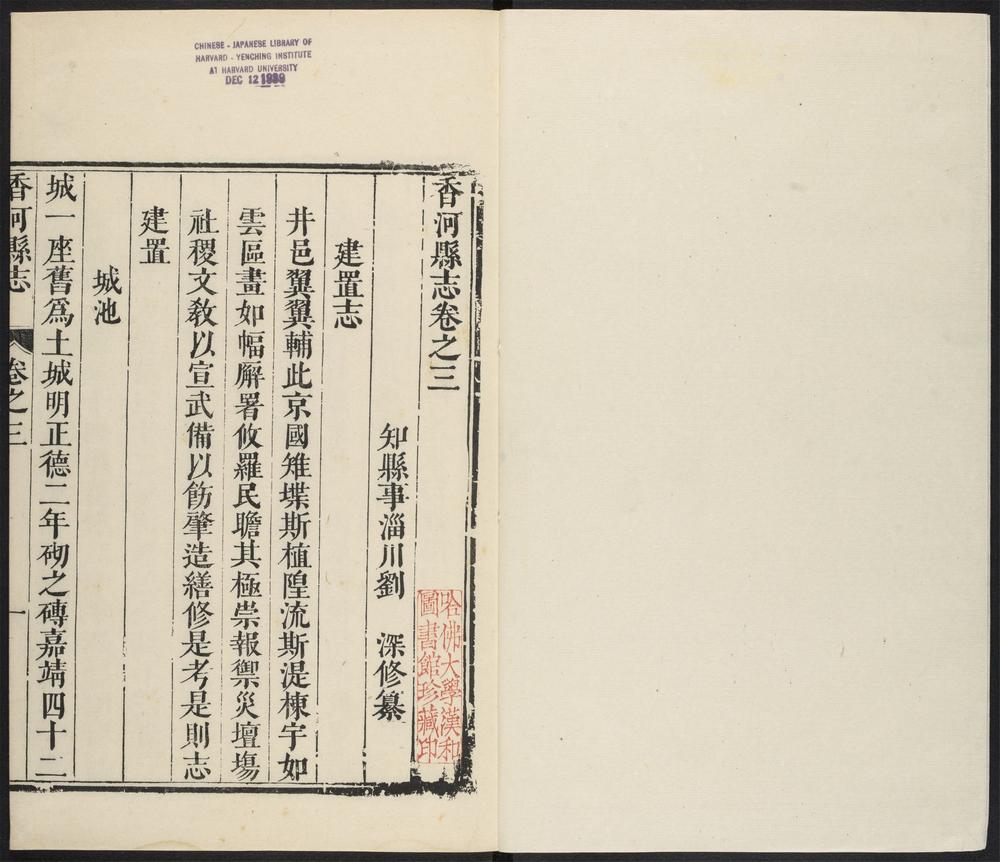 CHINESE - JAPANESE LIBRARY OF
HARVARD - YENCHING INSTITUTE
AT HARVARD UNIVERSITY
DEC 12 1939
香河縣志卷之三
知縣事淄川劉　深修纂
哈佛大學漢和
圖書館珍藏印
建置志
井邑翼翼輔此京國雉堞斯植隍流斯湜棟宇如
雲區畫如幅廨署攸羅民瞻其極崇報禦災壇場
社稷文敎以宣武備以飭肇造繕修是考是則志
建置
城池
城一座舊爲土城明正德二年砌之磚嘉靖四十二
香河縣志
卷之三
一